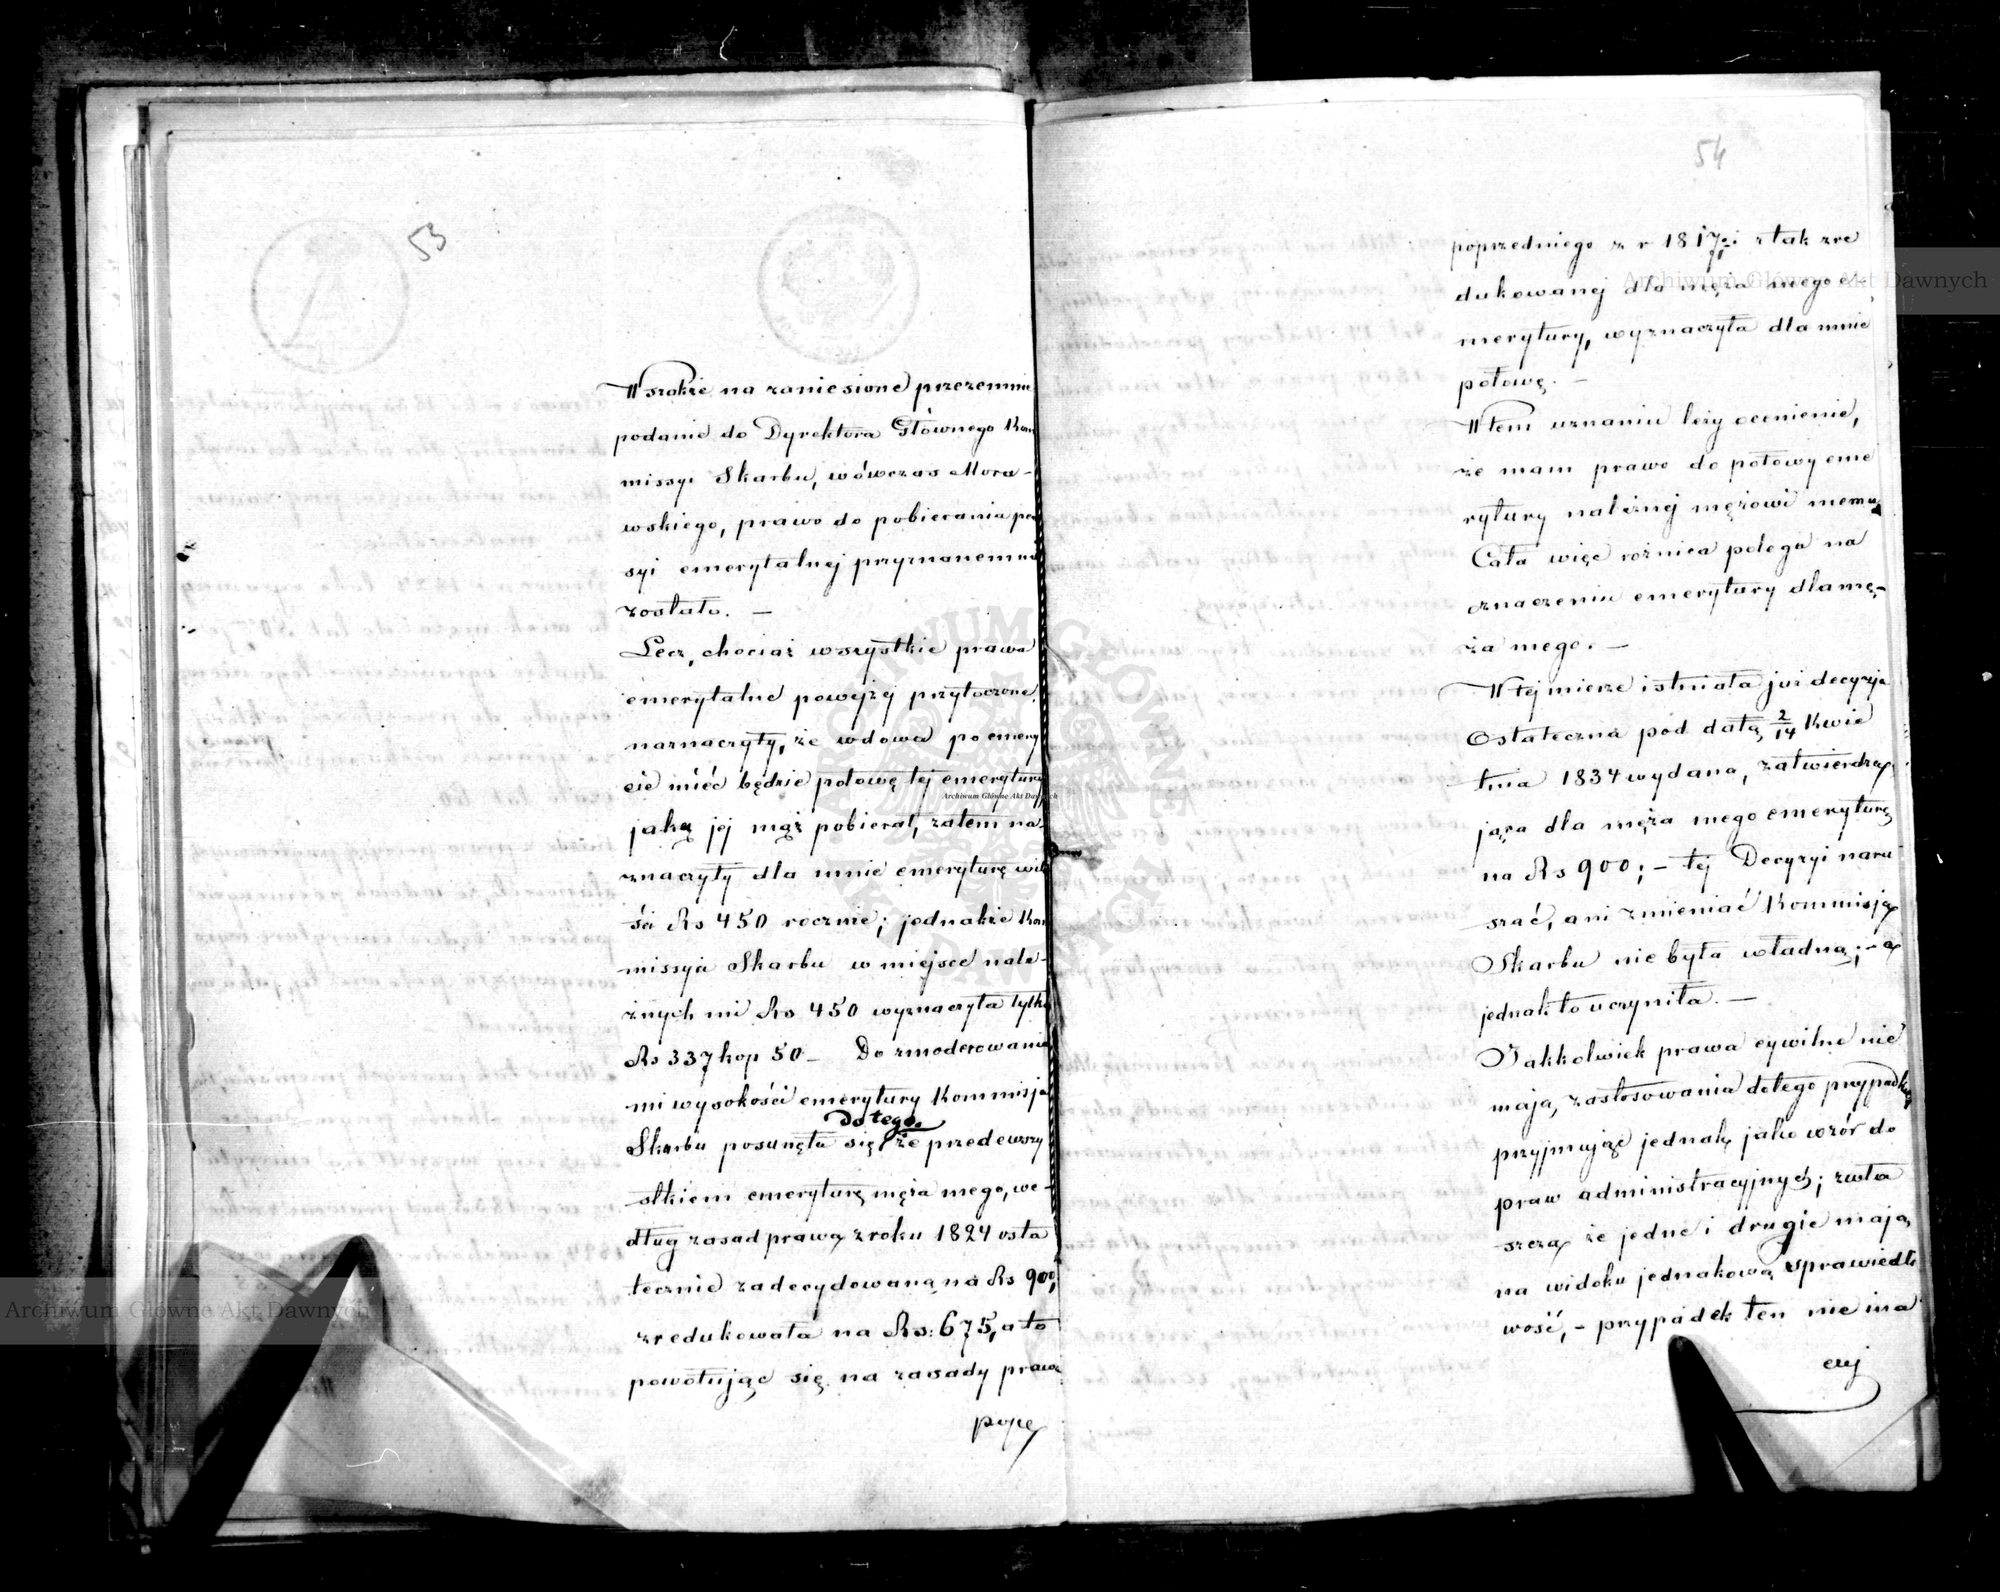 53
Wszakże na zaniesione przezemnie
podanie do Dyrektora Głównego Kom
missyi Skarbu, wówczas Mora-
wskiego, prawo do pobierania pen
syi emerytalnej przyznanem mi
zostało. —
Lecz, chociaż wszystkie prawa
emerytalne powyżej przytoczone
naznaczyły, że wdowa po emery
cie mieć będzie połowę tej emerytury
jaką jej mąż pobierał, zatem na-
znaczyły dla mnie emeryturę wilo
ści Rs 450 rocznie; jednakże Kom
missyia Skarbu w miejsce nale-
żnych mi Rs 450 wyznaczyła tylko
Rs 337 kop 50 — Do zmoderowania
mi wysokości emerytury Kommisja
do tego
Skarbu posunęła się że przedewszy
stkiem emeryturę męża mego, we-
dług zasad prawa z roku 1824 osta
tecznie zadecydowaną na Rs 900,
zredukowała na Rs: 675, a to
powołując się na zasady prawa
pope
54
poprzedniego z r 1817 i z tak zre
dukowanej dla męża mego e-
merytury, wyznaczyła dla mnie
połowę. —
W tem uznaniu leży ocenienie,
że mam prawo do połowy eme
rytury należnej mężowi memu,
Cała więc różnica polega na
oznaczeniu emerytury dla mę-
ża mego. —
W tej mierze istniała już decyzja
Ostateczna pod datą 2/14 Kwie
tnia 1834 wydana, zatwierdza
jąca dla męża mego emeryturę
na Rs 900; — tej Decyzyi naru
szać, ani zmieniać Kommisja
Skarbu nie była władną; — a
jednak to uczyniła. —
Jakkolwiek prawa cywilne nie
mają, zastosowania do tego przypadku
przyjmując jednak jako wzór do
praw administracyjnych; zwła
szcza że jedne i drugie mają
na widoku jednakową sprawiedli
wość, — przypadek ten nie ma
czy
Archiwum Główne Akt Dawnych
Archiwum Główne Akt Dawnych
Archiwum Główne Akt Dawnych
ARCHIWUM GŁÓWNE AKT DAWNYCH